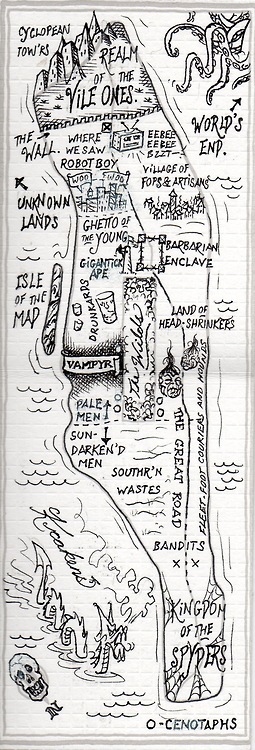 CYCLOPEAN
TOW'RS
REALM
OF THE
VILE ONES.
WORLD'S
END.
THE
WALL.
WHERE
WE SAW
ROBOT BOY
EEBEE
EEBEE
BZZT
WOO WOO
VILLAGE OF
FOPS & ARTISANS
UNKNOWN
LANDS
GHETTO OF
THE YOUNG
GIGANTICK
APE
BARBARIAN
ENCLAVE
ISLE
OF THE
MAD
DRUMSTICKS
the Wilds
LAND OF
HEAD-SHRINKERS
VAMPYR
PALE
MEN
SUN-
DARKEN'D
MEN
THE GREAT ROAD
FLEET-FOOT COURIERS AND HOUNDS
SOUTHR'N
WASTES
Kraken
BANDITS
KINGDOM
OF THE
SPYDERS
O-CENOTAPHS